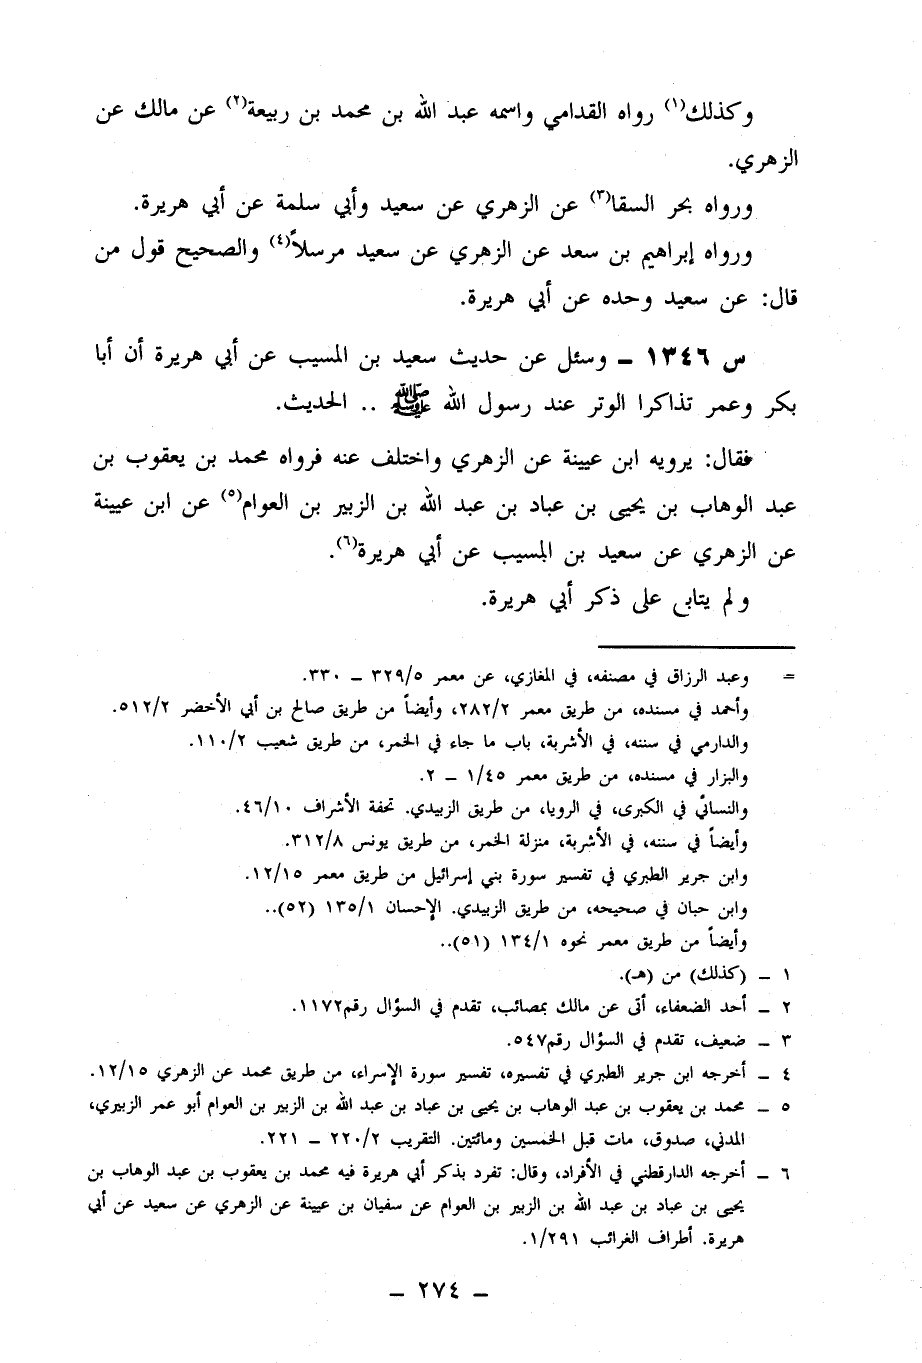 وكذلك(١) رواه القدامي واسمه عبد الله بن محمد بن ربيعة(٢) عن مالك عن
الزهري.
ورواه بحر السقا(٣) عن الزهري عن سعيد وأبي سلمة عن أبي هريرة.
ورواه إبراهيم بن سعد عن الزهري عن سعيد مرسلاً(٤) والصحيح قول من
قال: عن سعيد وحده عن أبي هريرة.
س ١٣٤٦ – وسئل عن حديث سعيد بن المسيب عن أبي هريرة أن أبا
بكر وعمر تذاكرا الوتر عند رسول الله ﷺ .. الحديث.
فقال: يرويه ابن عيينة عن الزهري واختلف عنه فرواه محمد بن يعقوب بن
عبد الوهاب بن يحيى بن عباد بن عبد الله بن الزبير بن العوام(٥) عن ابن عيينة
عن الزهري عن سعيد بن المسيب عن أبي هريرة(٦).
ولم يتابع على ذكر أبي هريرة.
= وعبد الرزاق في مصنفه، في المغازي، عن معمر ٣٢٩/٥ – ٣٣٠.
وأحمد في مسنده، من طريق معمر ٢٨٢/٢، وأيضاً من طريق صالح بن أبي الأخضر ٥١٢/٢.
والدارمي في سننه، في الأشربة، باب ما جاء في الخمر، من طريق شعيب ١١٠/٢.
والبزار في مسنده، من طريق معمر ١/٤٥ – ٢.
والنسائي في الكبرى، في الرويا، من طريق الزبيدي. تحفة الأشراف ٤٦/١٠.
وأيضاً في سننه، في الأشربة، منزلة الخمر، من طريق يونس ٣١٢/٨.
وابن جرير الطبري في تفسير سورة بني إسرائيل من طريق معمر ١٢/١٥.
وابن حبان في صحيحه، من طريق الزبيدي. الإحسان ١٣٥/١ (٥٢)..
وأيضاً من طريق معمر نحوه ١٣٤/١ (٥١)..
١ – (كذلك) من (هـ).
٢ – أحد الضعفاء، أتى عن مالك بمصائب، تقدم في السؤال رقم١١٧٢.
٣ – ضعيف، تقدم في السؤال رقم٥٤٧.
٤ – أخرجه ابن جرير الطبري في تفسيره، تفسير سورة الإسراء، من طريق محمد عن الزهري ١٢/١٥.
٥ – محمد بن يعقوب بن عبد الوهاب بن يحيى بن عباد بن عبد الله بن الزبير بن العوام أبو عمر الزبيري،
المدني، صدوق، مات قبل الخمسين ومائتين. التقريب ٢٢٠/٢ – ٢٢١.
٦ – أخرجه الدارقطني في الأفراد، وقال: تفرد بذكر أبي هريرة فيه محمد بن يعقوب بن عبد الوهاب بن
يحيى بن عباد بن عبد الله بن الزبير بن العوام عن سفيان بن عيينة عن الزهري عن سعيد عن أبي
هريرة. أطراف الغرائب ١/٢٩١.
– ٢٧٤ –